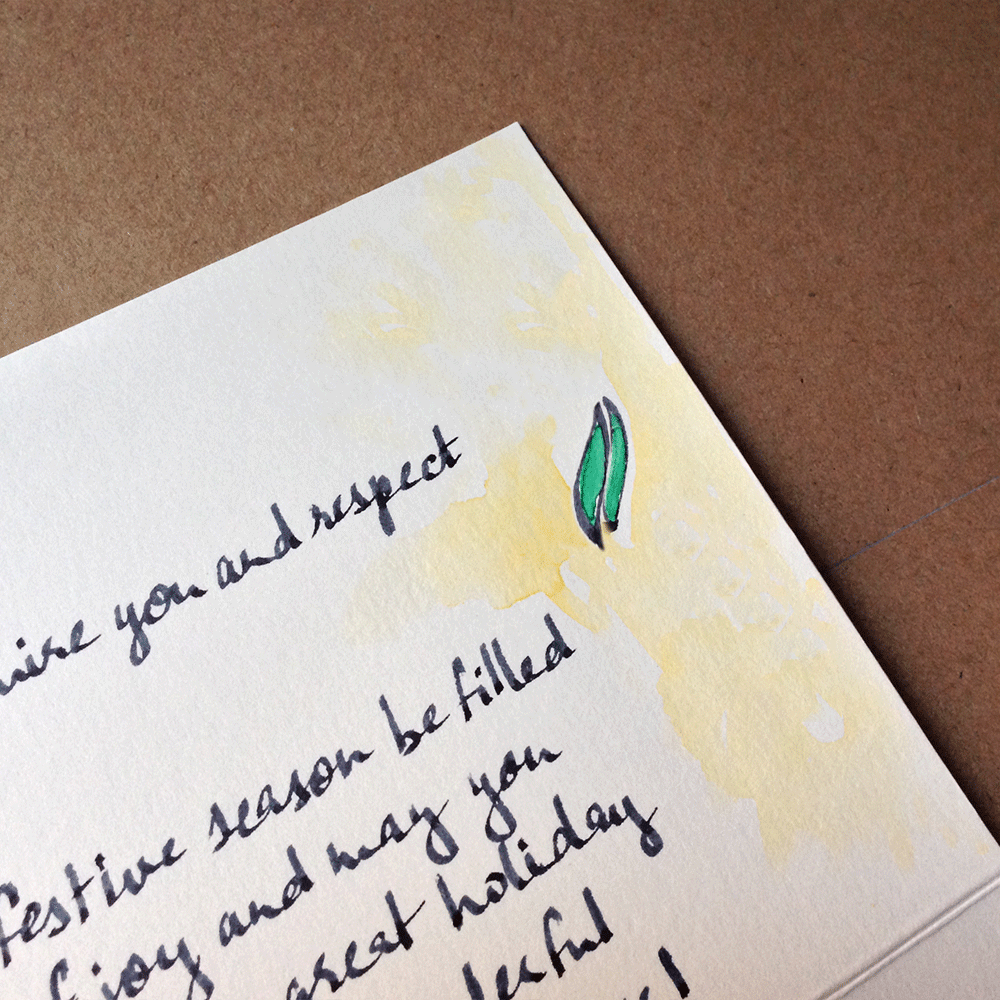 you and respect
festive season be filled
joy and may you
great holiday